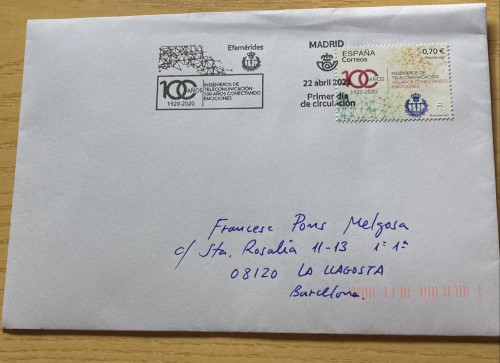 Efemérides
100 AÑOS
1920-2020
INGENIEROS DE
TELECOMUNICACIÓN
100 AÑOS CONECTANDO
EMOCIONES
MADRID
Correos
22 abril 2021
Primer día
de circulación
ESPAÑA
Correos
0,70 €
Efemérides
100 AÑOS
1920-2020
INGENIEROS DE
TELECOMUNICACIÓN
100 AÑOS CONECTANDO
EMOCIONES
Francesc Pons Melgosa
c/ Sta. Rosalia 11-13 1º 1ª
08120 LA LLAGOSTA
Barcelona.